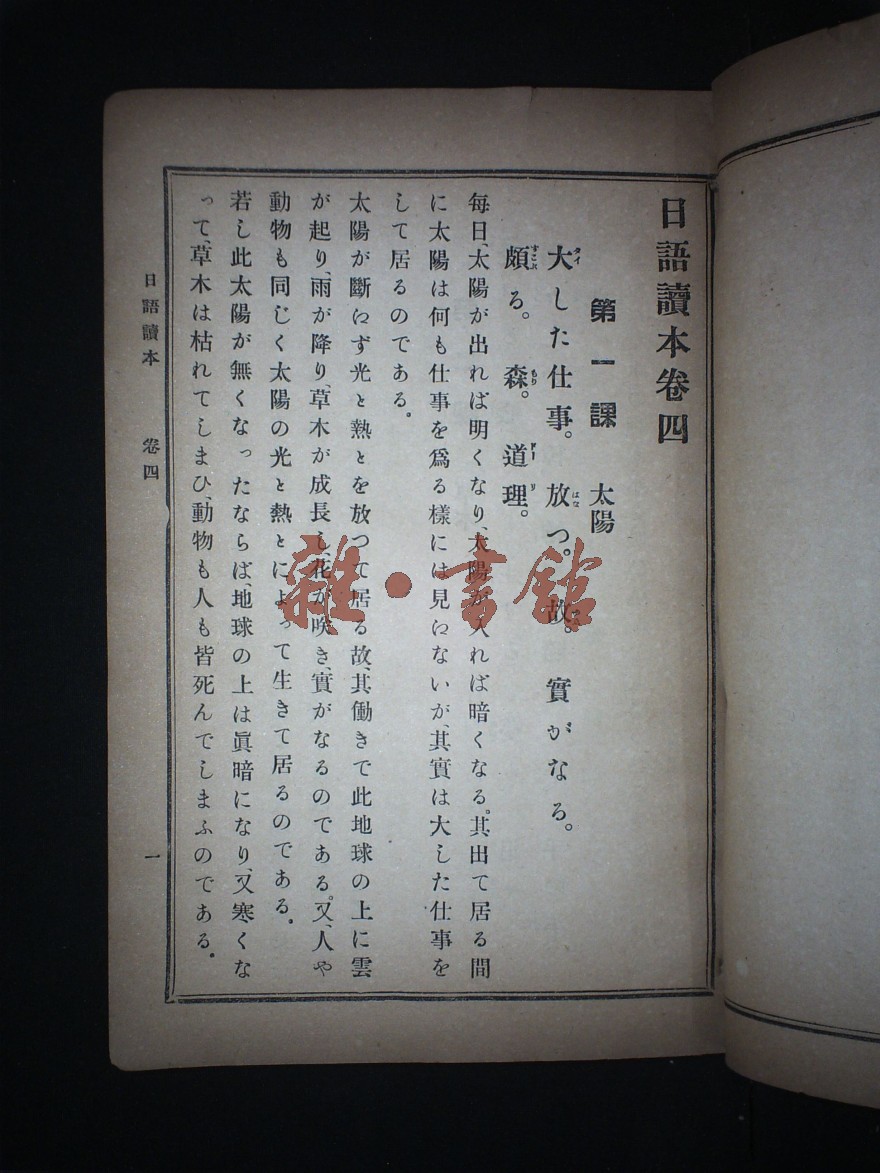 日語讀本卷四
第一課 太陽
タイ はな
大した仕事。放つ。故。實がなる。
すこぶ もり ドーリ
頗る。森。道理。
毎日、太陽が出れば明くなり、太陽が入れば暗くなる。其出て居る間
に太陽は何も仕事を爲る樣には見えないが、其實は大した仕事を
して居るのである。
太陽が斷えず光と熱とを放つて居る故、其働きで此地球の上に雲
が起り、雨が降り、草木が成長し、花が咲き、實がなるのである。又、人や
動物も同じく太陽の光と熱とによって生きて居るのである。
若し此太陽が無くなったならば、地球の上は眞暗になり、又寒くな
って、草木は枯れてしまひ、動物も人も皆死んでしまふのである。
日語讀本 卷四 一
雜·書館